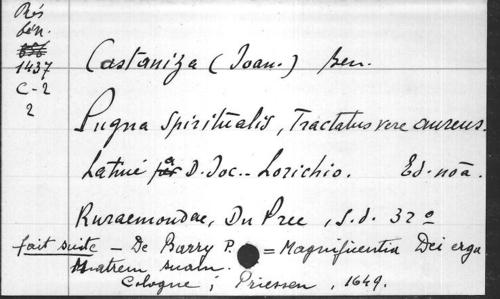 Rés
Gén.
1437
C-2
2
Castaniza (Joan.) ben.
Pugna Spiritualis, Tractatus vere aureus.
Latine a D. Joc. Lorichio. Ed. noa.
Ruraemondae, Du Pree, s.d. 32º
fait suite - De Barry P. = Magnificentia Dei erga
Matrem suam.
Cologne ; Friessen, 1649.